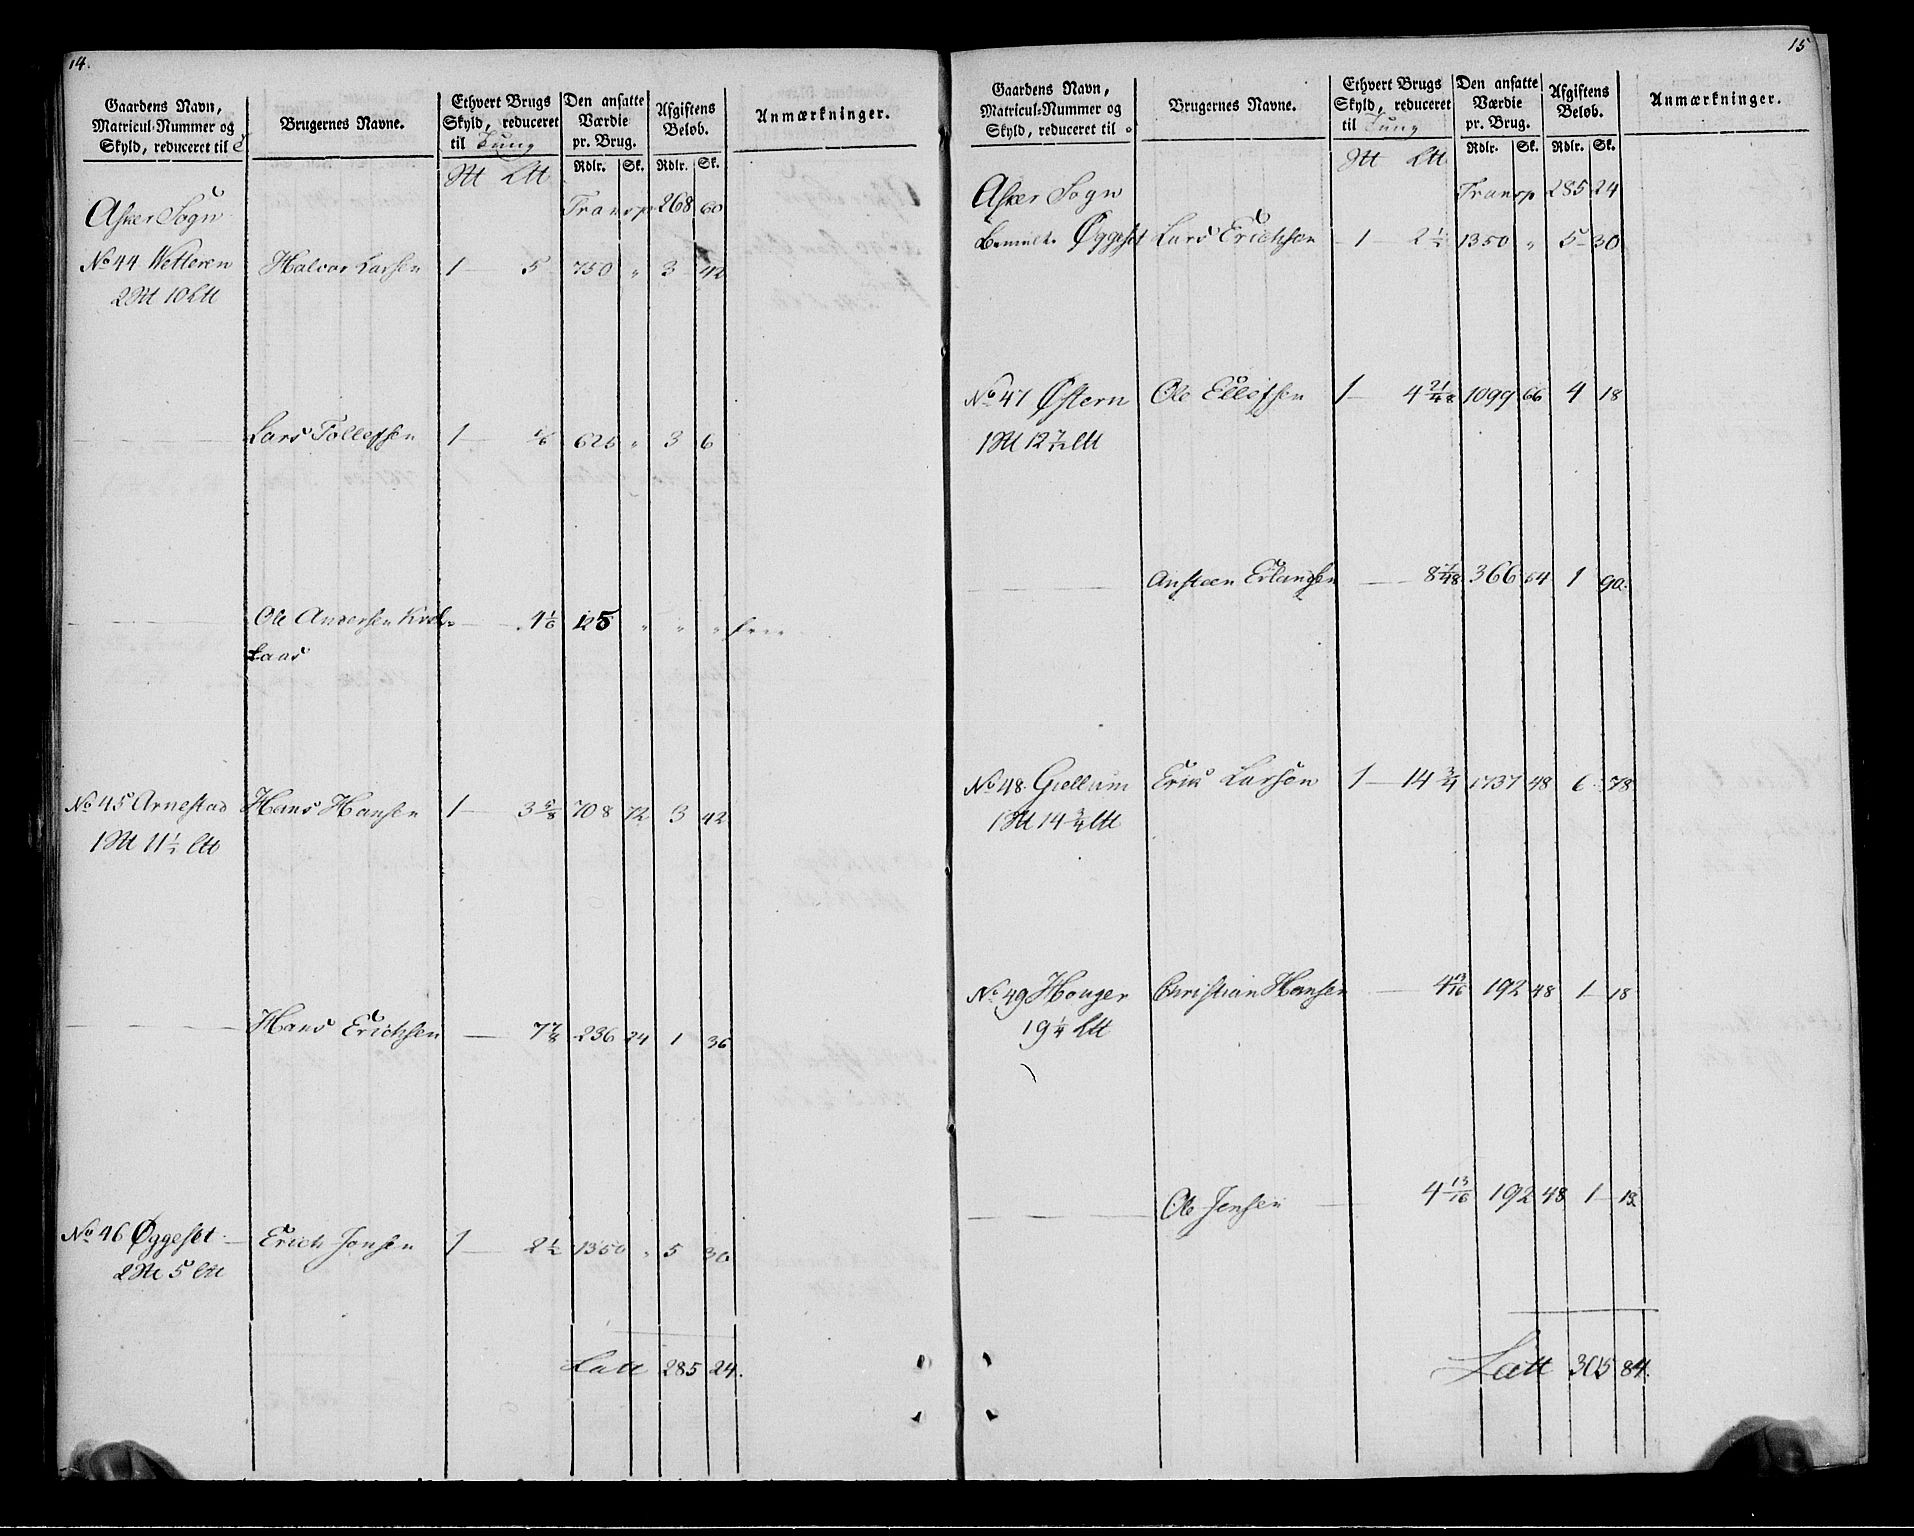 14.
Gaardens Navn, Matricul-Nummer og Skyld, reduceret til
Brugernes Navne.
Ethvert Brugs Skyld, reduceret til Tung
Den ansatte Værdie pr. Brug.
Afgiftens Beløb.
Anmærkninger.
Rdlr. Sk. Rdlr. Sk.
Asker Sogn Transp 268 60
No 44 Wetteren Halvor Larsen 1 — 5 750 " 3 42
2 10
Lars Tollefsen 1 — 5/6 625 " 3 6
Ole Andersen 4 1/6 125 " " " frie
No 45 Arnestad Hans Hansen 1 — 3 5/8 708 72 3 42
1 11 1/2
Hans Erichsen — 7 7/8 236 24 1 36
No 46 Øggeset Erich Jonsen 1 — 2 1/2 1350 " 5 30
2 5
Latt 285 24.
15
Gaardens Navn, Matricul-Nummer og Skyld, reduceret til
Brugernes Navne.
Ethvert Brugs Skyld, reduceret til Tung
Den ansatte Værdie pr. Brug.
Afgiftens Beløb.
Anmærkninger.
Rdlr. Sk. Rdlr. Sk.
Asker Sogn Transp 285 24
Øggeset Lars Erichsen 1 — 2 1/2 1350 " 5 30
No 47 Østern Ole Ellefsen 1 — 4 21/48 1099 66 4 18
1 12 7/12
Ansteen Erlandsen — 8 7/48 366 54 1 90.
No 48. Giellum Eric Larsen 1 — 14 3/4 1737 48 6 78
1 14 3/4
No 49 Houger Christian Hansen — 4 13/16 192 48 1 18
19 1/4
Ole Jensen — 4 13/16 192 48 1 18
Latt 305 84.